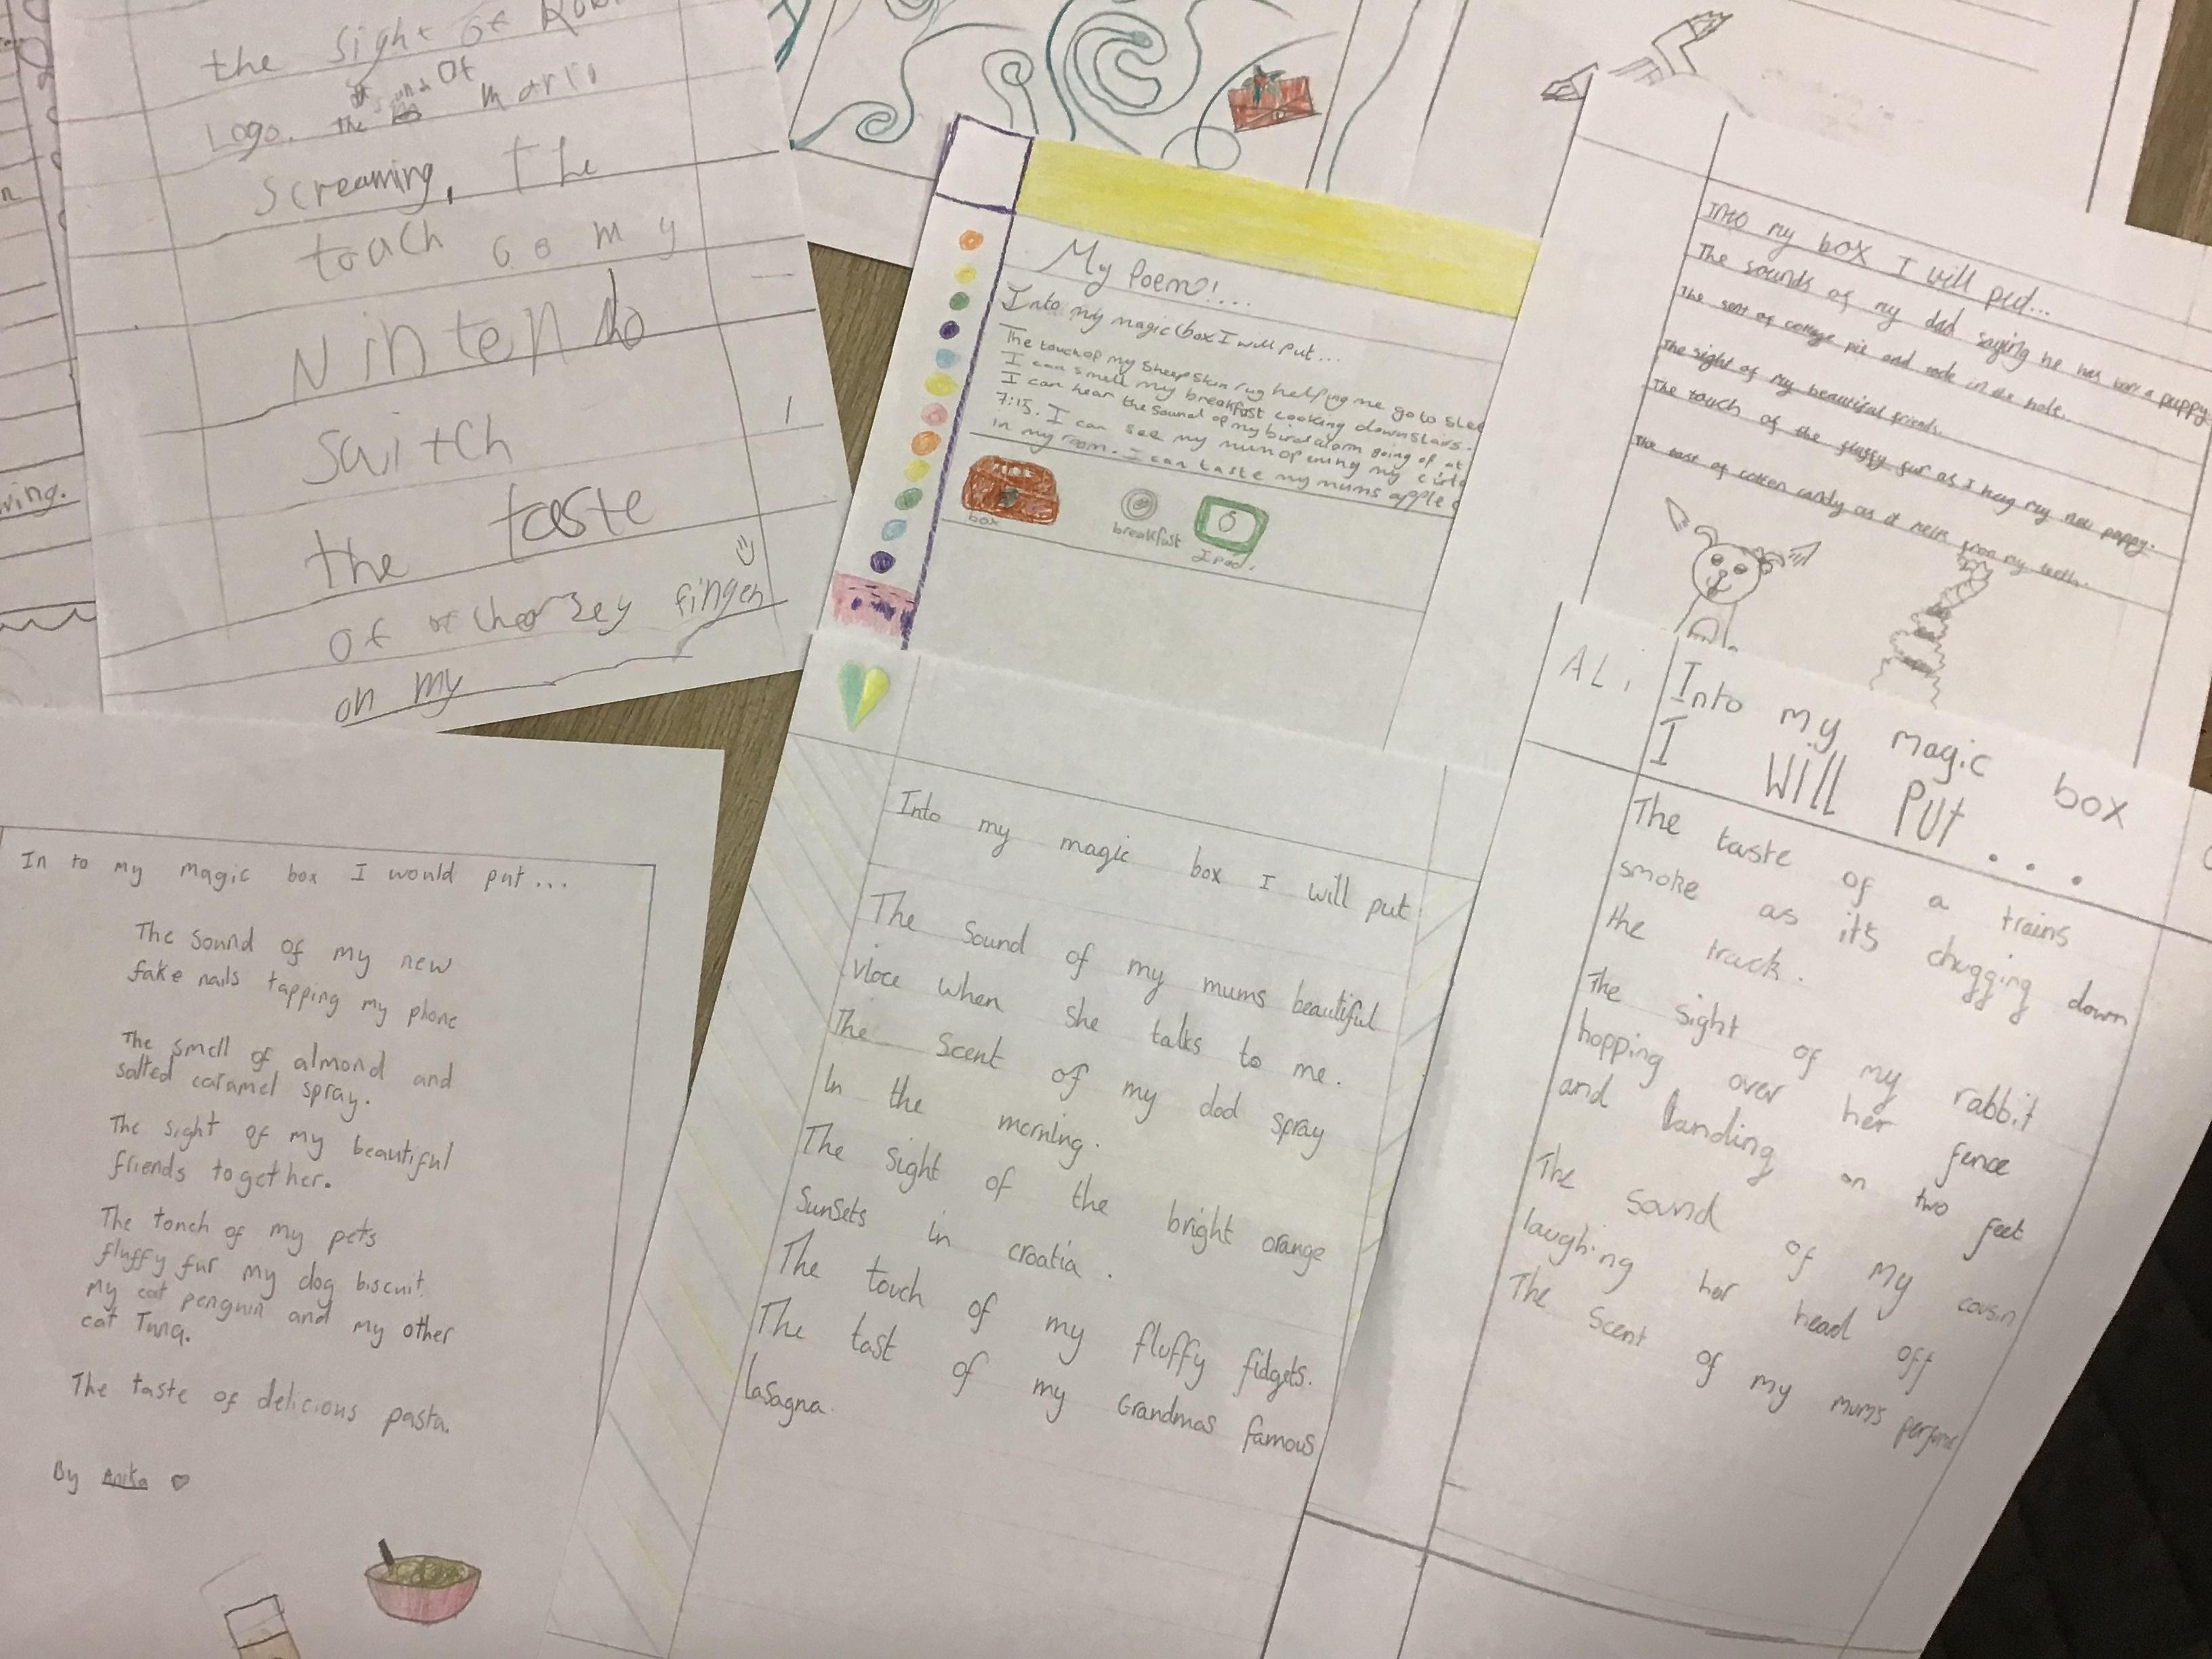 the sight of
Logo. the sound Of Mario
screaming, the
touch of my
Nintendo
switch
the taste
of cheesey finger
on my
ving.
My Poem!...
Into my magic box I will put...
The touch of my sheepskin rug helping me go to slee
I can smell my breakfast cooking downstairs.
I can hear the sound of my bird alarm going of at
7:15. I can see my mum opening my
in my room. I can taste my mums apple
box
breakfast
Ipad.
INto my box I will put...
The sounds of my dad saying he has born a puppy
The sent of cottage pie and in the
The sight of my beautiful friends.
The touch of the fluffy fur as I hug my new puppy.
The tast of cotten candy as it my teeth.
In to my magic box I would put...
The sound of my new
fake nails tapping my phone
The smell of almond and
salted caramel spray.
The sight of my beautiful
friends together.
The tonch of my pets
fluffy fur my dog biscuit.
my cat penguin and my other
cat
The taste of delicious pasta.
By Anika
Into my magic box I will put
The Sound of my mums beautiful
vioce when she talks to me.
The Scent of my dad spray
In the morning.
The sight of the bright orange
Sunsets in croatia.
The touch of my fluffy fidgets.
The tast of my Grandmas famous
Lasagna.
ALi
Into my magic box
I Will PUt...
The taste of a trains
smoke as it's chugging down
the track.
The sight of my rabbit
hopping over her fence
and landing on two feet
The Sound of my cousin
laughing her head off
The Scent of my mums perfume